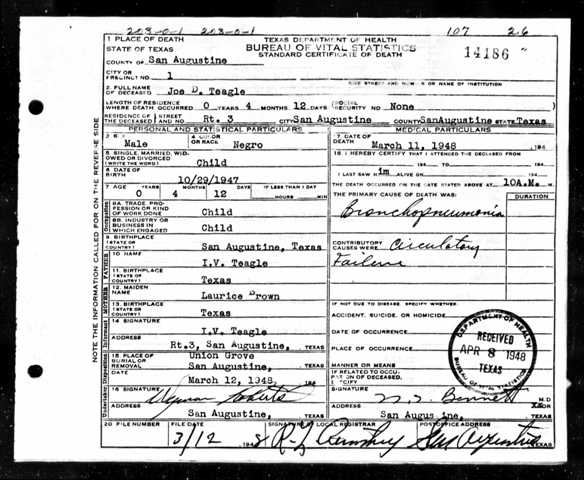 203-0-1 203-0-1 107 26
1 PLACE OF DEATH TEXAS DEPARTMENT OF HEALTH
STATE OF TEXAS BUREAU OF VITAL STATISTICS
STANDARD CERTIFICATE OF DEATH 14186
COUNTY OF San Augustine
CITY OR
PRECINCT NO. 1 GIVE STREET AND NUMBER OR NAME OF INSTITUTION
2. FULL NAME
OF DECEASED Joe D. Teagle
LENGTH OF RESIDENCE
WHERE DEATH OCCURRED 0 YEARS 4 MONTHS 12 DAYS SOCIAL SECURITY NO None
RESIDENCE OF THE DECEASED STREET AND NO Rt. 3 CITY San Augustine COUNTY SanAugustine STATE Texas
PERSONAL AND STATISTICAL PARTICULARS MEDICAL PARTICULARS
3 SEX Male 4 COLOR OR RACE Negro
7 DATE OF DEATH March 11, 1948 194
5 SINGLE, MARRIED, WIDOWED OR DIVORCED (WRITE THE WORD) Child
18 I HEREBY CERTIFY THAT I ATTENDED THE DECEASED FROM
194 TO 194
6 DATE OF BIRTH 10/29/1947
I LAST SAW H im ALIVE ON 194
7 AGE YEARS MONTHS DAYS IF LESS THAN 1 DAY
0 4 12 HOURS MIN
THE DEATH OCCURRED ON THE DATE STATED ABOVE AT 10A.M. M
THE PRIMARY CAUSE OF DEATH WAS: DURATION
8A TRADE, PROFESSION OR KIND OF WORK DONE Child
Bronchopneumonia
8B. INDUSTRY OR BUSINESS IN WHICH ENGAGED Child
9 BIRTHPLACE (STATE OR COUNTRY) San Augustine, Texas
CONTRIBUTORY CAUSES WERE Circulatory
Failure
10 NAME I.V. Teagle
11. BIRTHPLACE (STATE OR COUNTRY) Texas
12. MAIDEN NAME Laurice Brown
IF NOT DUE TO DISEASE, SPECIFY WHETHER:
13. BIRTHPLACE (STATE OR COUNTRY) Texas
ACCIDENT, SUICIDE, OR HOMICIDE
14 SIGNATURE I.V. Teagle
DATE OF OCCURRENCE
ADDRESS Rt.3, San Augustine, TEXAS
PLACE OF OCCURRENCE
15 PLACE OF BURIAL OR REMOVAL Union Grove
San Augustine, TEXAS
MANNER OR MEANS
March 12, 1948,
IF RELATED TO OCCUPATION OF DECEASED, SPECIFY
16 SIGNATURE
SIGNATURE Bennett M.D
ADDRESS San Augustine, TEXAS
San Augustine, TEXAS
20 FILE NUMBER FILE DATE SIGNATURE OF LOCAL REGISTRAR POSTOFFICE ADDRESS
3/12 1948 San Augustine
NOTE THE INFORMATION CALLED FOR ON THE REVERSE SIDE
Occupation
FATHER
MOTHER
Informant
Undertaker Disposition
DEPARTMENT OF HEALTH
RECEIVED
APR 8 1948
TEXAS
BUREAU OF VITAL STATISTICS